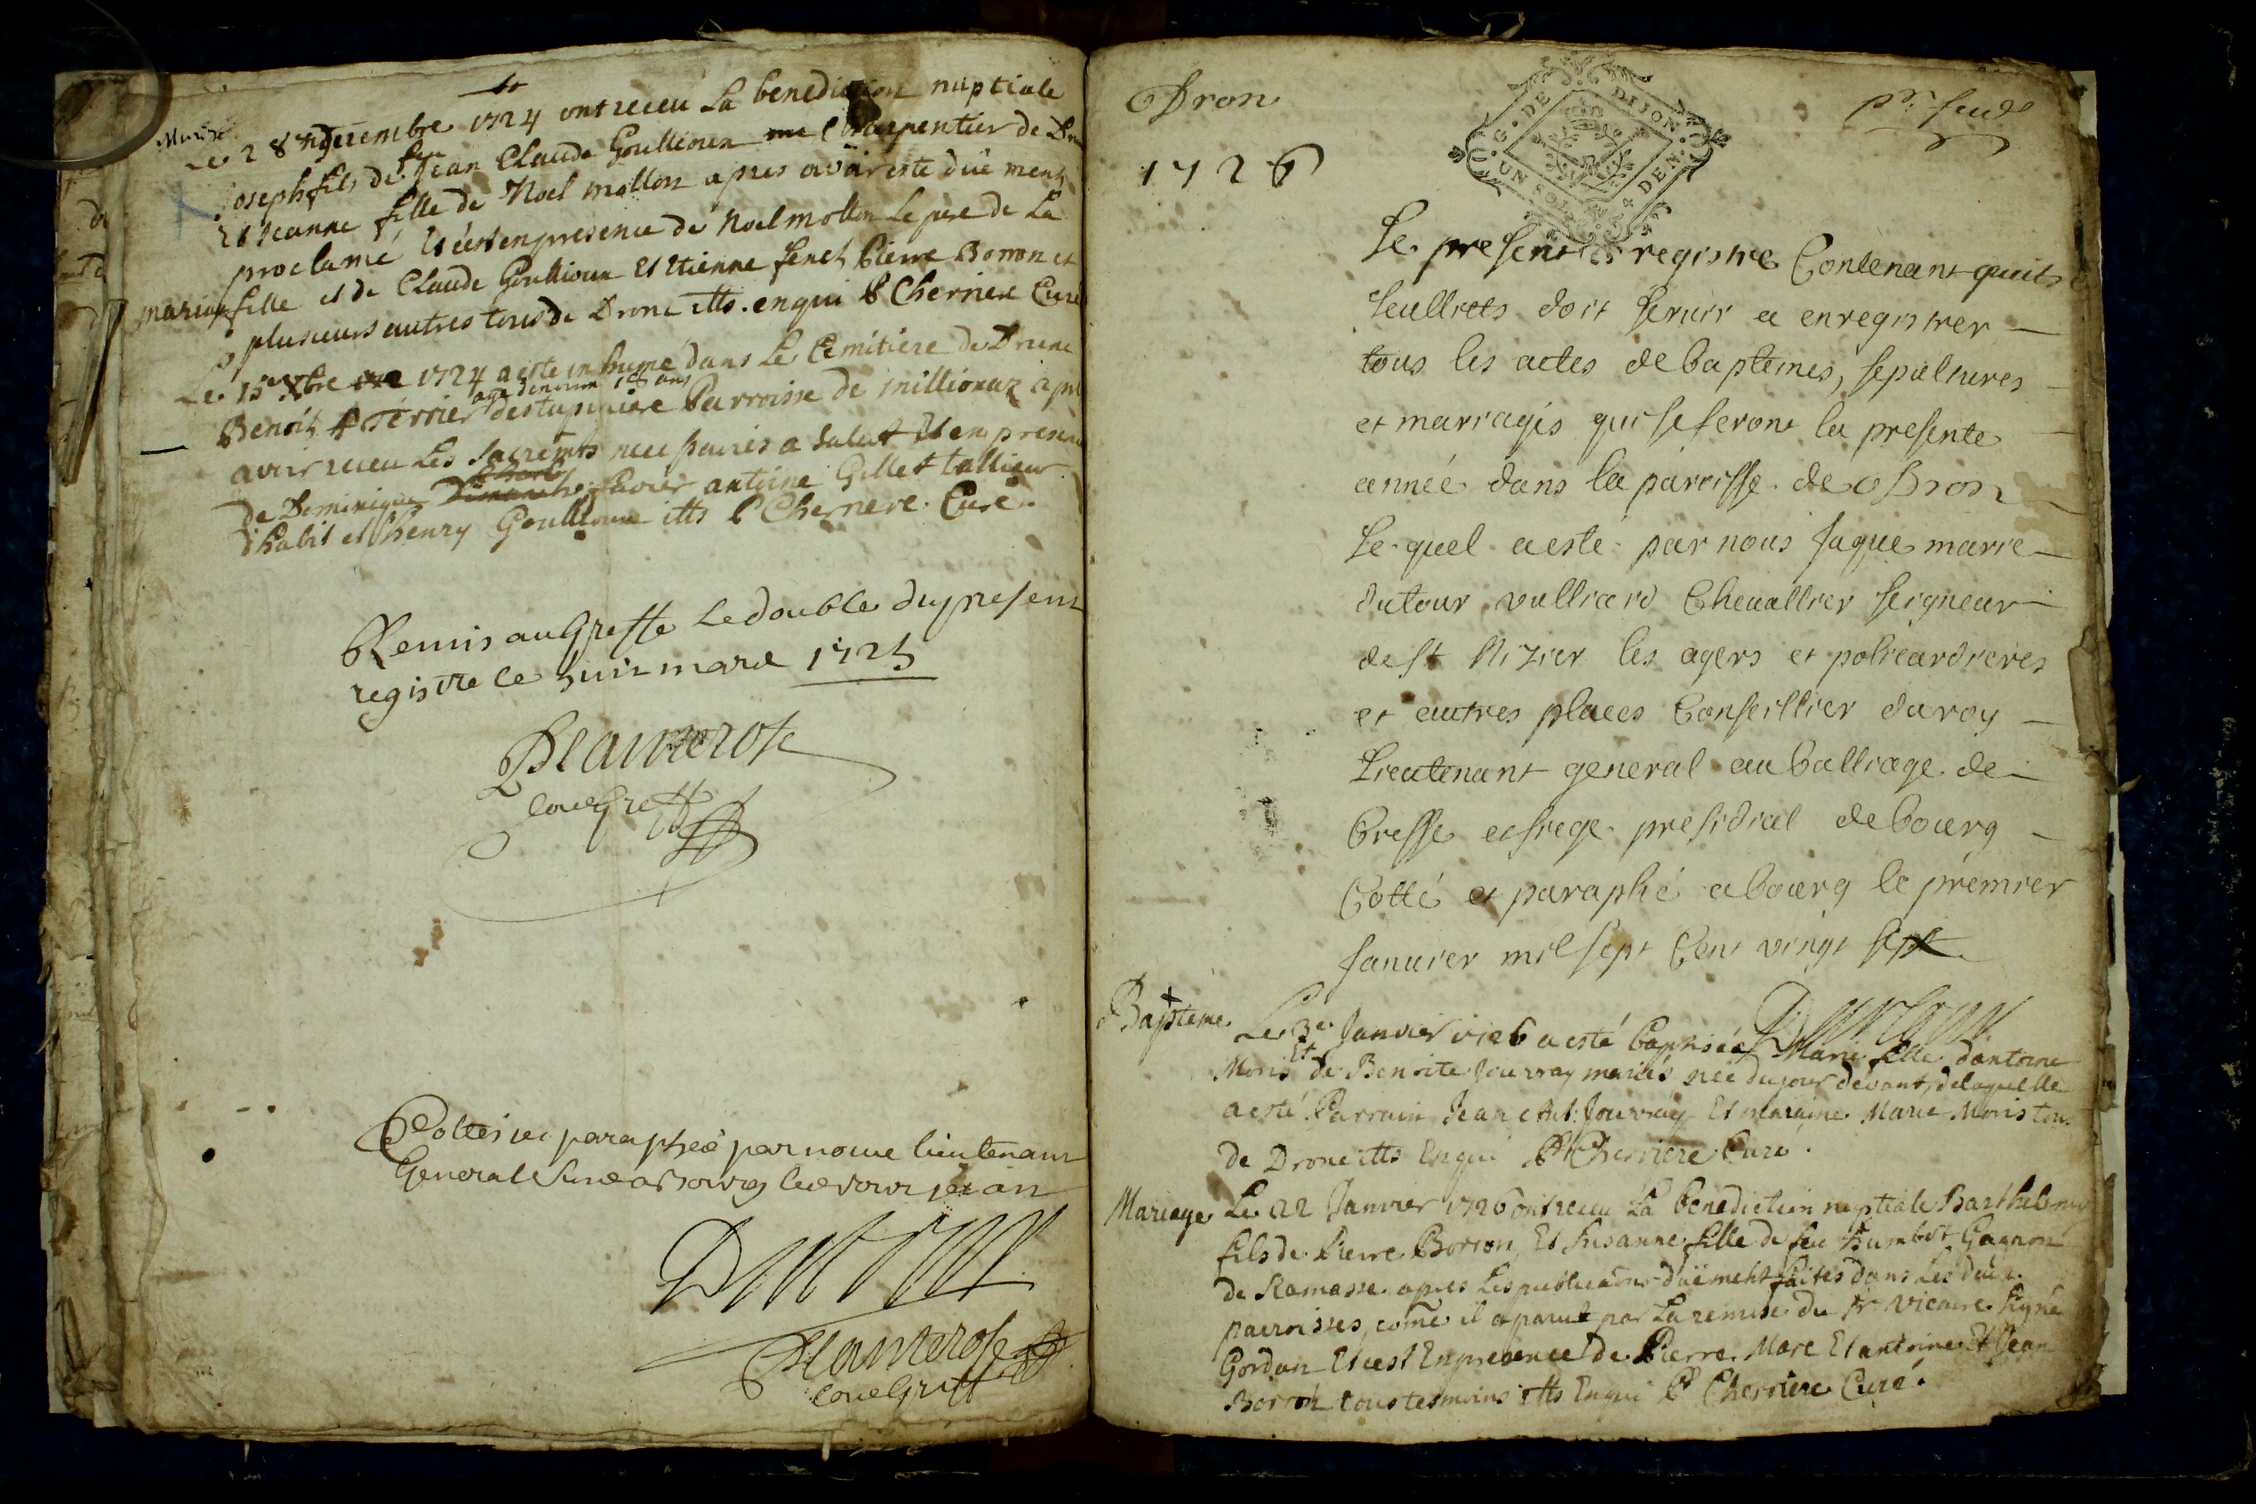 Le 28 Decembre 1724 ont receu La benediction nuptiale
Joseph fils de feu Jean Claude Goullioux Charpentier de
Et Jeanne fille de Noel mollon apres avoir este düe ment
proclamé Et cest en presence de Noel mollon Le pere de La
mariage
fille et de Claude Goullioux Et Etienne Pierre Borron et
plusieurs autres tous de Drone itts. enqui P Cherriere Curé
Le 15e Xbre 1724 a este inhumé dans Le Cemitiere de Drone
agé denviron ans
Benoit Terrier Parroisse de
avoir receu Les Sacremts necessaires a Salut Et en presence
de Dominique antoine Gillet tallieur
d'habit et henry Goullioux itts P Cherriere Curé.
Remis au Greffe Le double du present
registre ce huit mars 1725
Beauderose
Com Greff
Cottes et paraphée par noue lieutenant
General
Beauderose
Com Greff
Dron
pr. feuile
1726
G. DE DIJON.
UN SOL DEN.
Le present registre Contenant quattre
feullets doit servir a enregistrer
tous les actes de baptemes, sepultures
et mariages qui se feront la presente
année dans la paroisse de Dron
Le quel a esté par nous Jaque marie
dutour vulliard Chevallier seigneur
de St Nizier les agers et
et autres places Conseillier du roy
Lieutenant general au balliage de
Bresse et siege presidial de bourg
Cotté et paraphé a bourg le premier
Janvier mil sept Cent vingt
Dutour
Bapteme
Le 3e Janvier 1726 a esté baptisée Marie fille d'antoine
Moris Et de Benoite Jouvray mariés née du jour devant, delaquelle
a esté Parrain Jean Ant: Jouvray Et maraine Marie Moris tous
de Drone itts Enqui P Cherriere Curé.
Mariage
Le 22 Janvier 1726 ont receu La benediction nuptiale Barthelemy
fils de Pierre Borron, Et Susanne fille de feu humbert Gagnon
de Ramasse apres Les publications düement faites dans Les deux
parroisses, come il aparut par La remise du Sr Vicaire signé
Gordan Et cest En presence de Pierre, Marc Et antoine Et Jean
Borron tous tesmoins itts Enqui P Cherriere Curé.